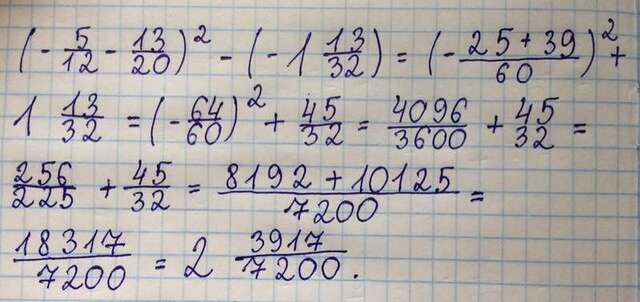 (- 5/12 - 13/20)² - (- 1 13/32) = (- 25 + 39/60)² +
1 13/32 = (- 64/60)² + 45/32 = 4096/3600 + 45/32 =
256/225 + 45/32 = 8192 + 10125/7200 =
18317/7200 = 2 3917/7200.